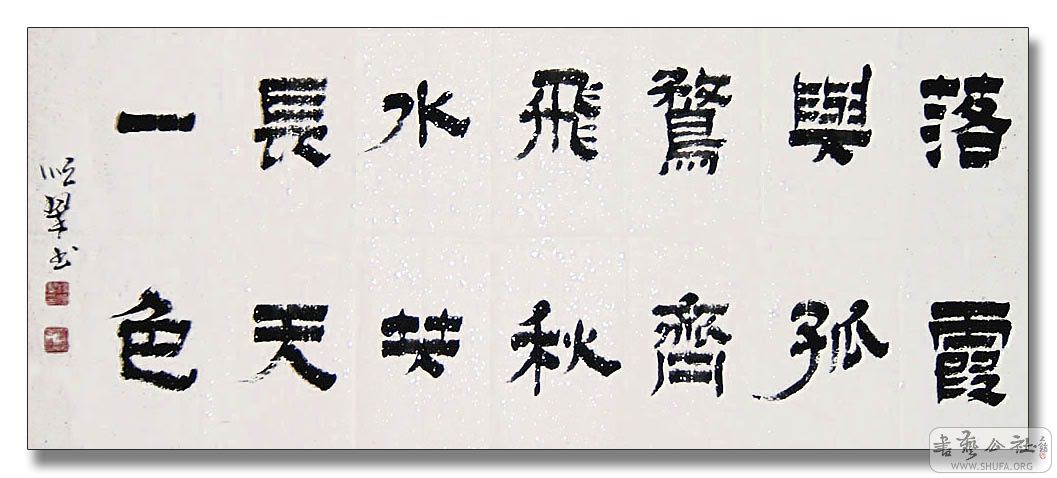 落霞
與孤
鶩齊
飛秋
水共
長天
一色
书
書藝公社
WWW.SHUFA.ORG